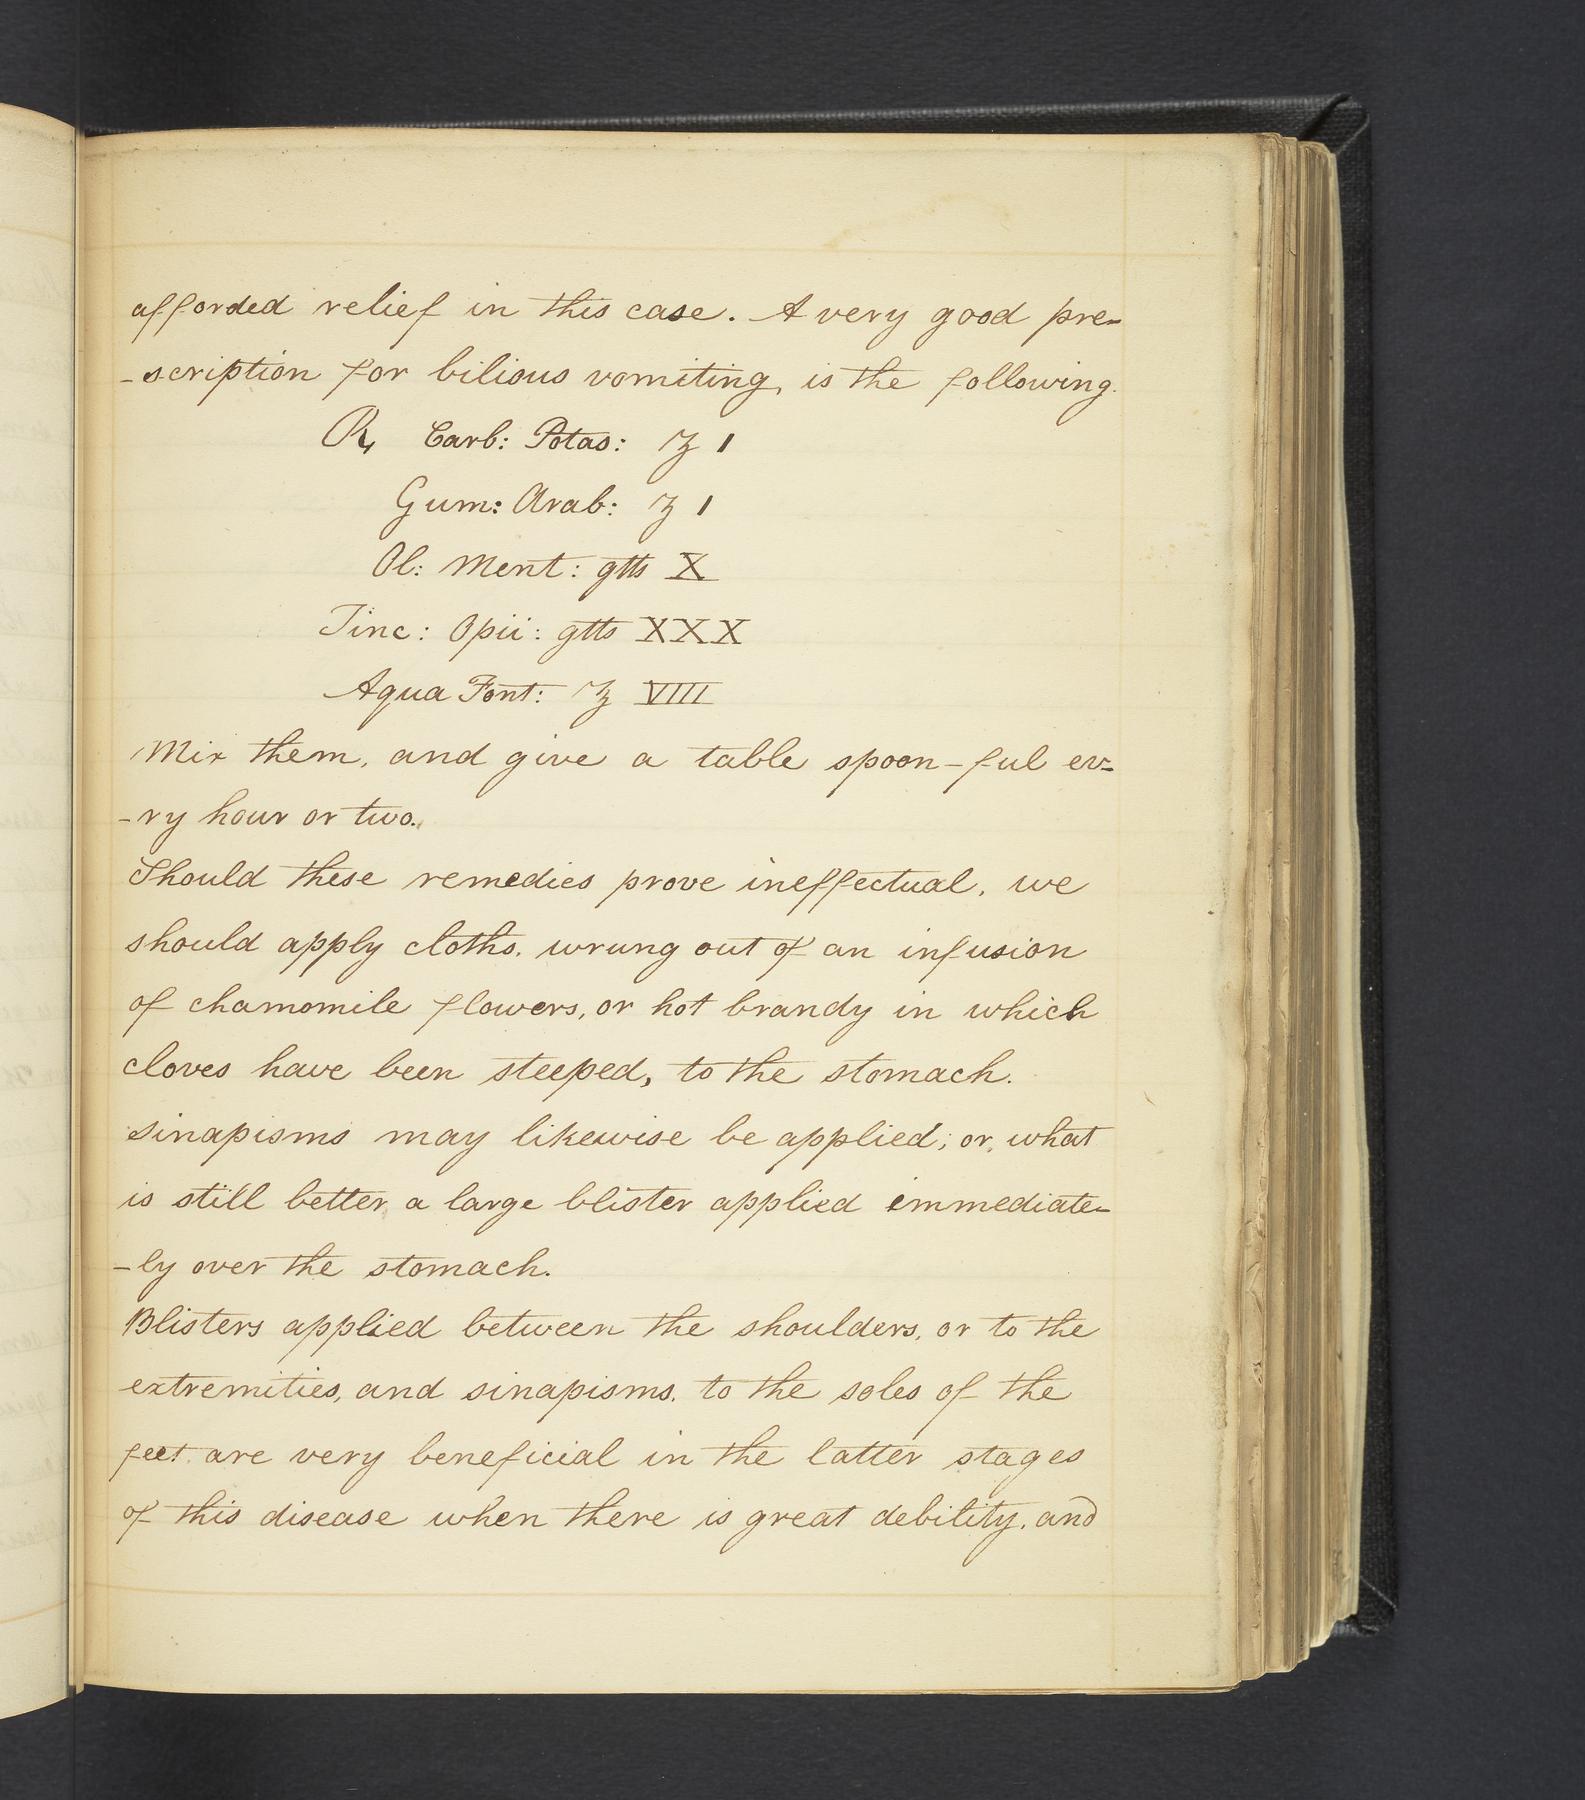 afforded relief in this case. A very good pre-
-scription for bilious vomiting, is the following.
℞ Carb: Potas: ʒ I
Gum: Arab: ʒ I
Ol: Ment: gtts X
Tinc: Opii: gtts XXX
Aqua Font: ʒ VIII
Mix them, and give a table spoon-ful ev-
-ry hour or two.
Should these remedies prove ineffectual, we
should apply cloths, wrung out of an infusion
of chamomile flowers, or hot brandy in which
cloves have been steeped, to the stomach.
Sinapisms may likewise be applied; or, what
is still better, a large blister applied immediate-
-ly over the stomach.
Blisters applied between the shoulders, or to the
extremities, and sinapisms, to the soles of the
feet, are very beneficial in the latter stages
of this disease when there is great debility, and